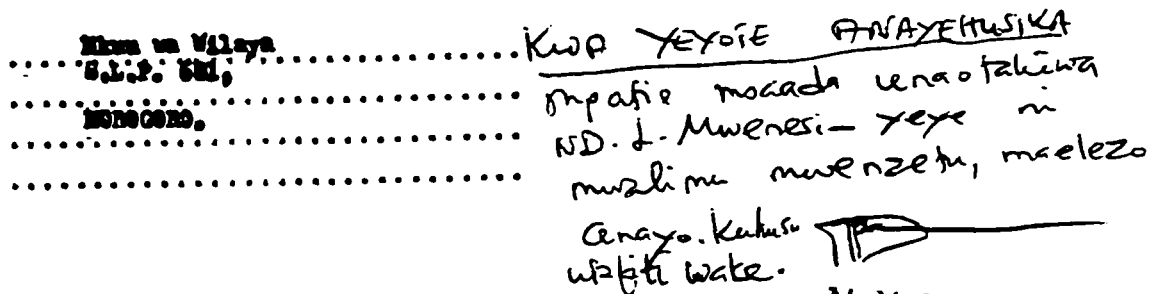 Mkuu wa Wilaya
S.L.P.
MOROGORO.
KWA YEYOTE ANAYEHUSIKA
Mpatie msaada unaotakiwa
ND. L. Mwenesi - yeye ni
mwalimu mwenzetu, maelezo
anayo. Kuhusu
utafiti wake.